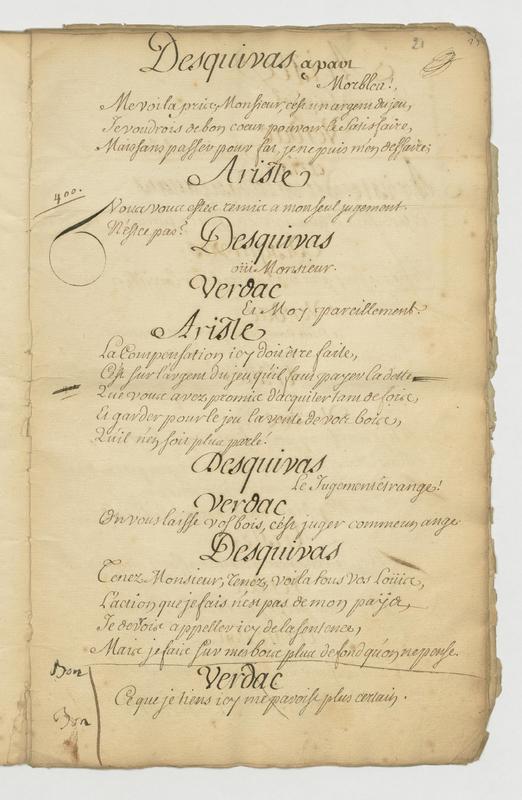 21
Desquivas apart
Morbleu!,
Me voila pris, Monsieur, c'est un argent du jeu,
Je voudrois de bon coeur pouvoir le satisfaire,
Mais sans passer pour fat, je ne puis m'en deffaire;
Ariste
400.
Vous vous estes remis a mon seul jugement.
N'est ce pas?
Desquivas
oüi Monsieur.
Verdac
Et Moy pareillement.
Ariste
La Compensation icy doit être faite,
C'est sur l'argent du jeu qu'il faut payer la dette
Que vous avez promis d'acquiter tant de fois,
Et garder pour le jeu la vente de vos bois,
Qu'il n'en soit plus parlé.
Desquivas
Le Jugement étrange!
Verdac
On vous laisse vos bois, c'est juger comme un ange
Desquivas
Tenez Monsieur, Tenez, voila tous vos Loüis,
L'action que je fais n'est pas de mon païs,
Je devois appeller icy de la sentence,
Mais je fais sur mes bois plus de fond qu'on ne pense
Bon
Verdac
Ce que je tiens icy me paroist plus certain.
Bon